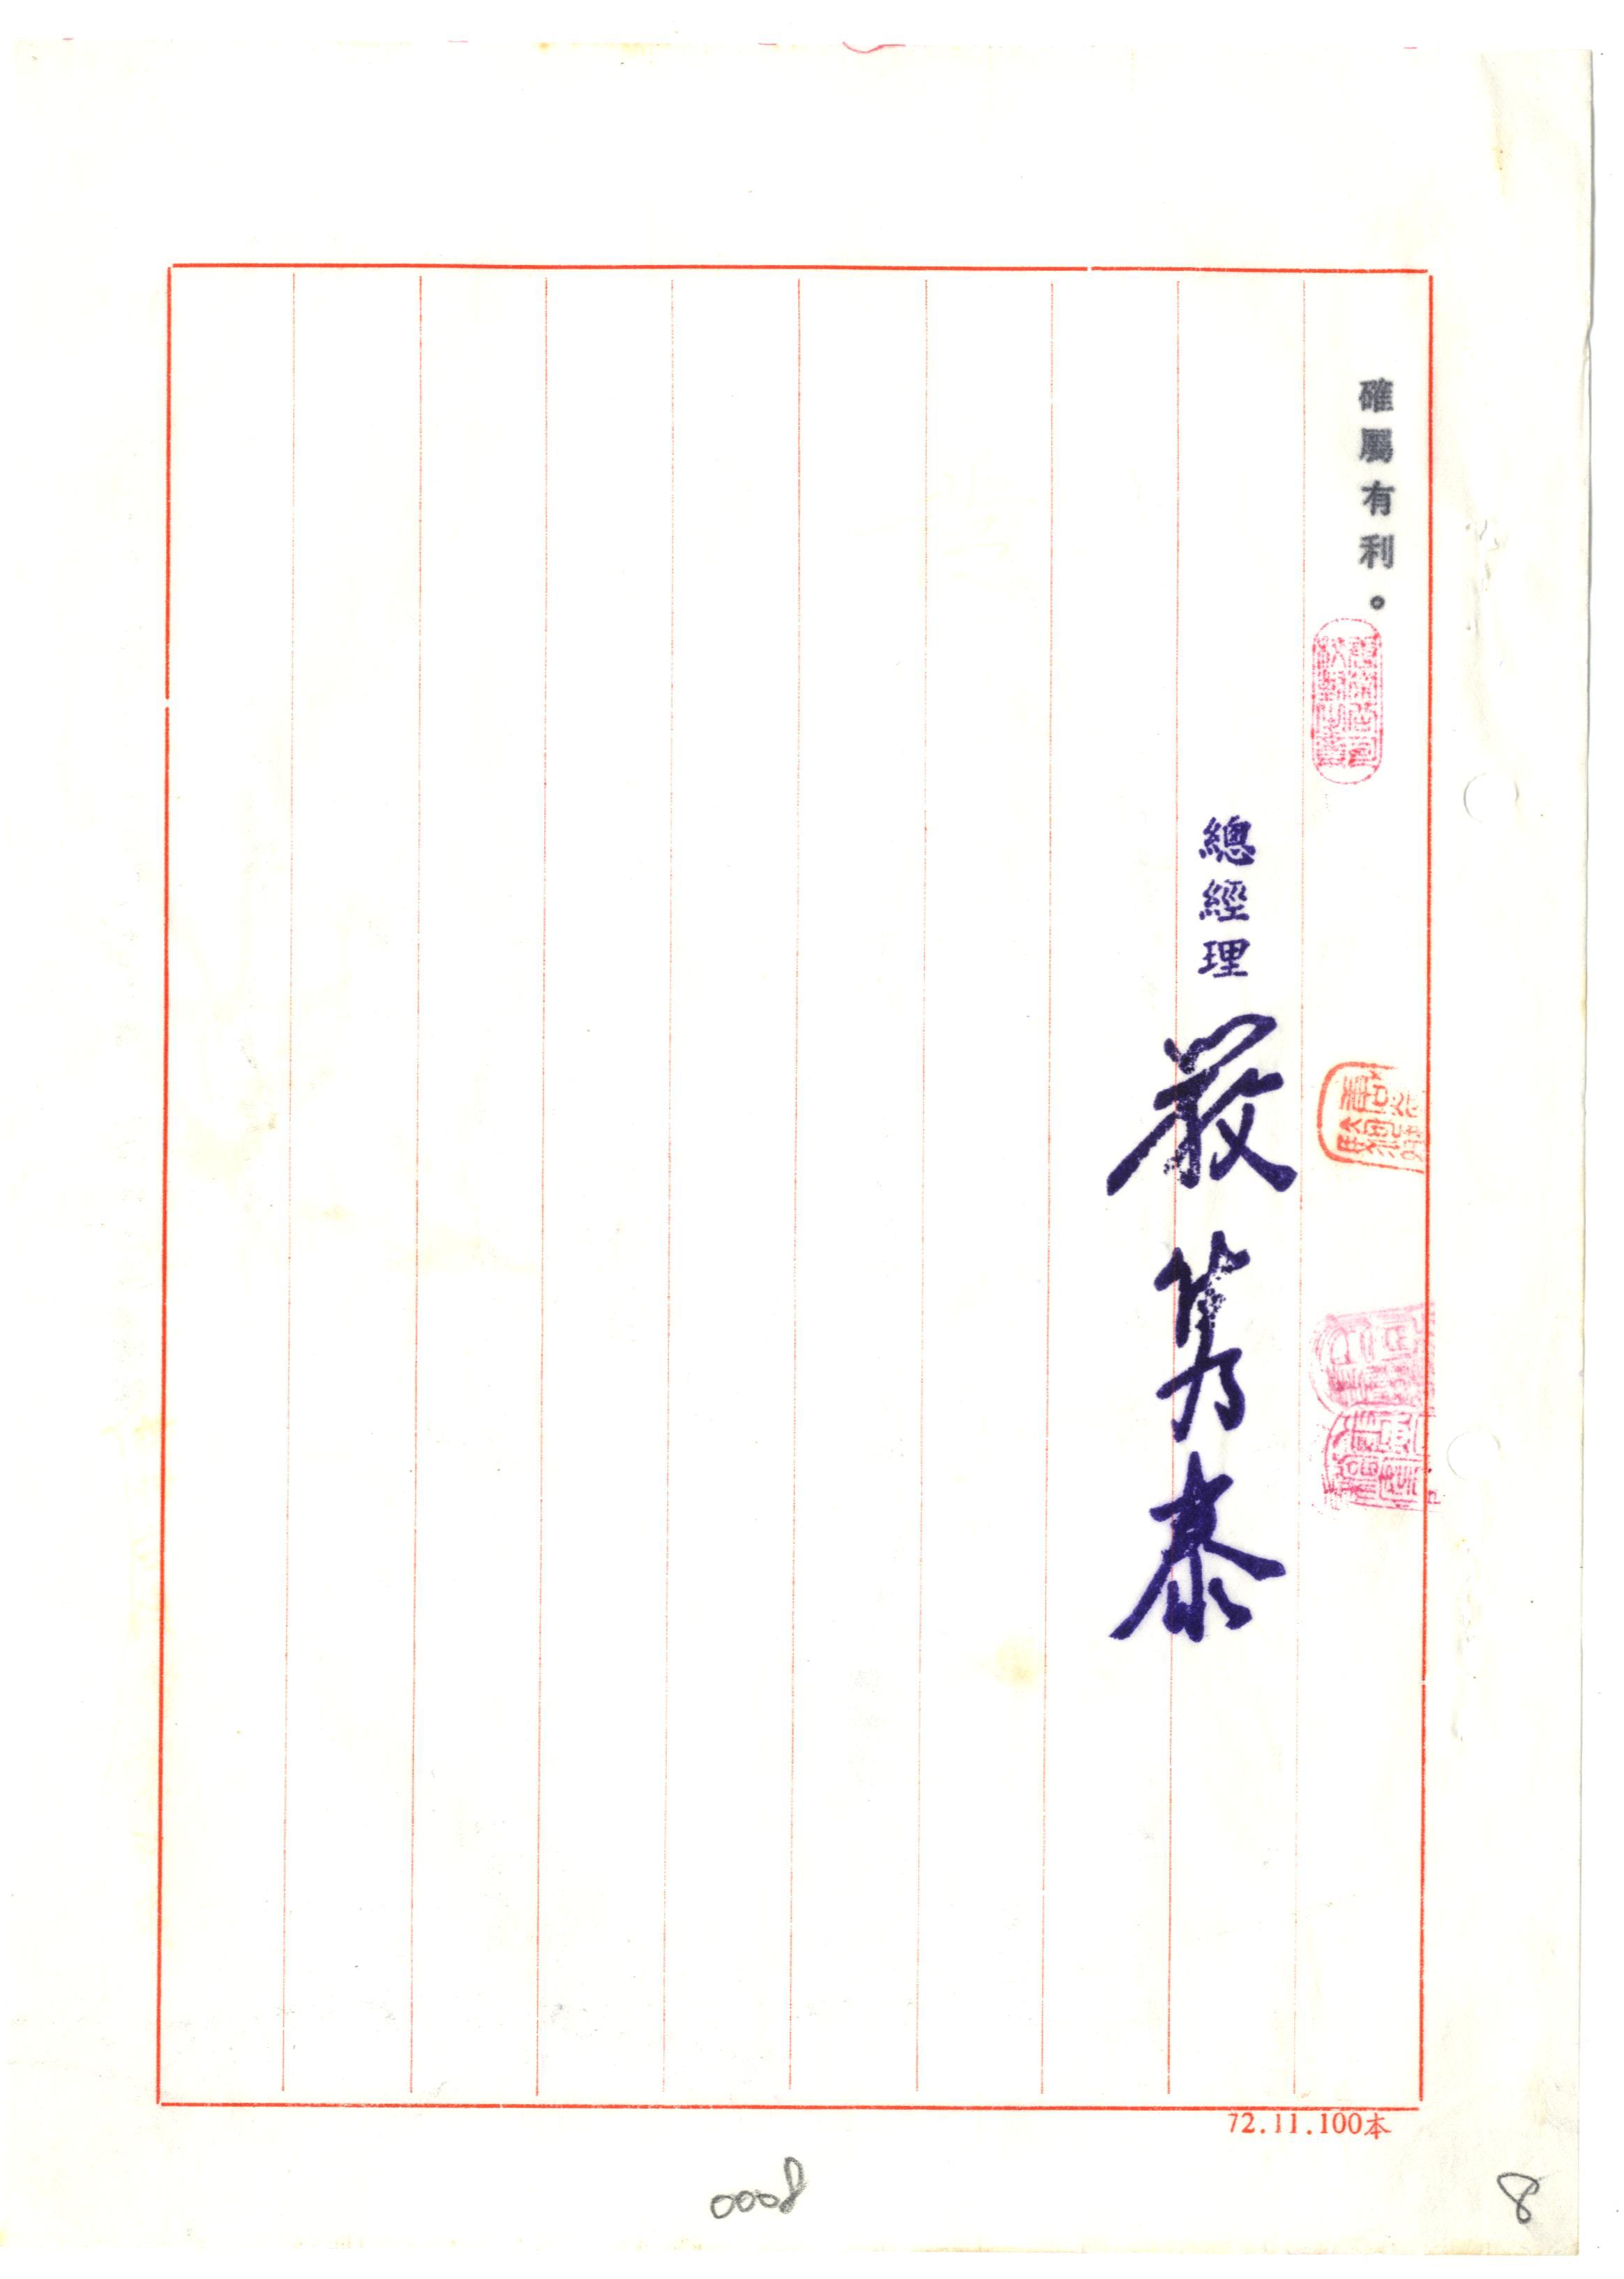 確屬有利。
總經理
嚴雋泰
72.11.100本
0008
8